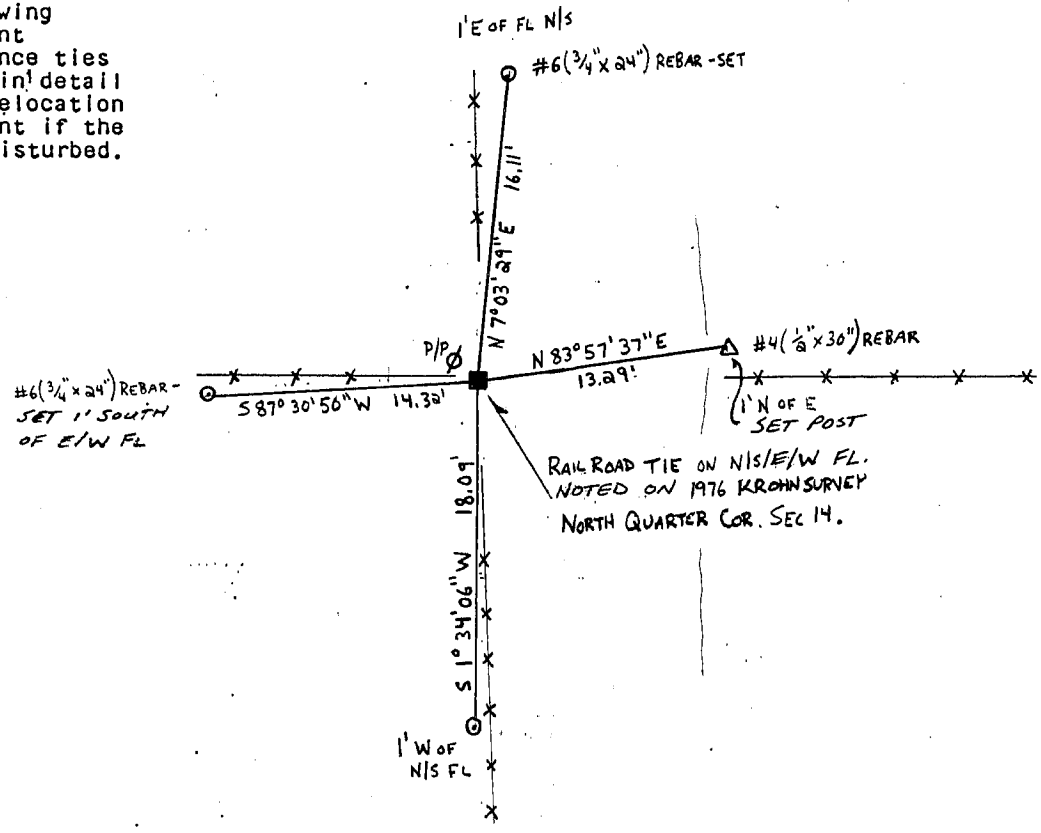 wing
nt
nce ties
in detail
elocation
nt if the
isturbed.
1'E OF FL N/S
#6(3/4"x24") REBAR-SET
16.11'
N 7°03'29"E
P/P
N 83°57'37"E
13.29'
#4(1/2"x30") REBAR
1'N OF E
SET POST
#6(3/4"x24") REBAR-
SET 1' SOUTH
OF E/W FL
S 87°30'50"W 14.32'
RAIL ROAD TIE ON N/S/E/W FL.
NOTED ON 1976 KROHN SURVEY
NORTH QUARTER COR. SEC 14.
18.09'
S 1°34'06"W
1'W OF
N/S FL